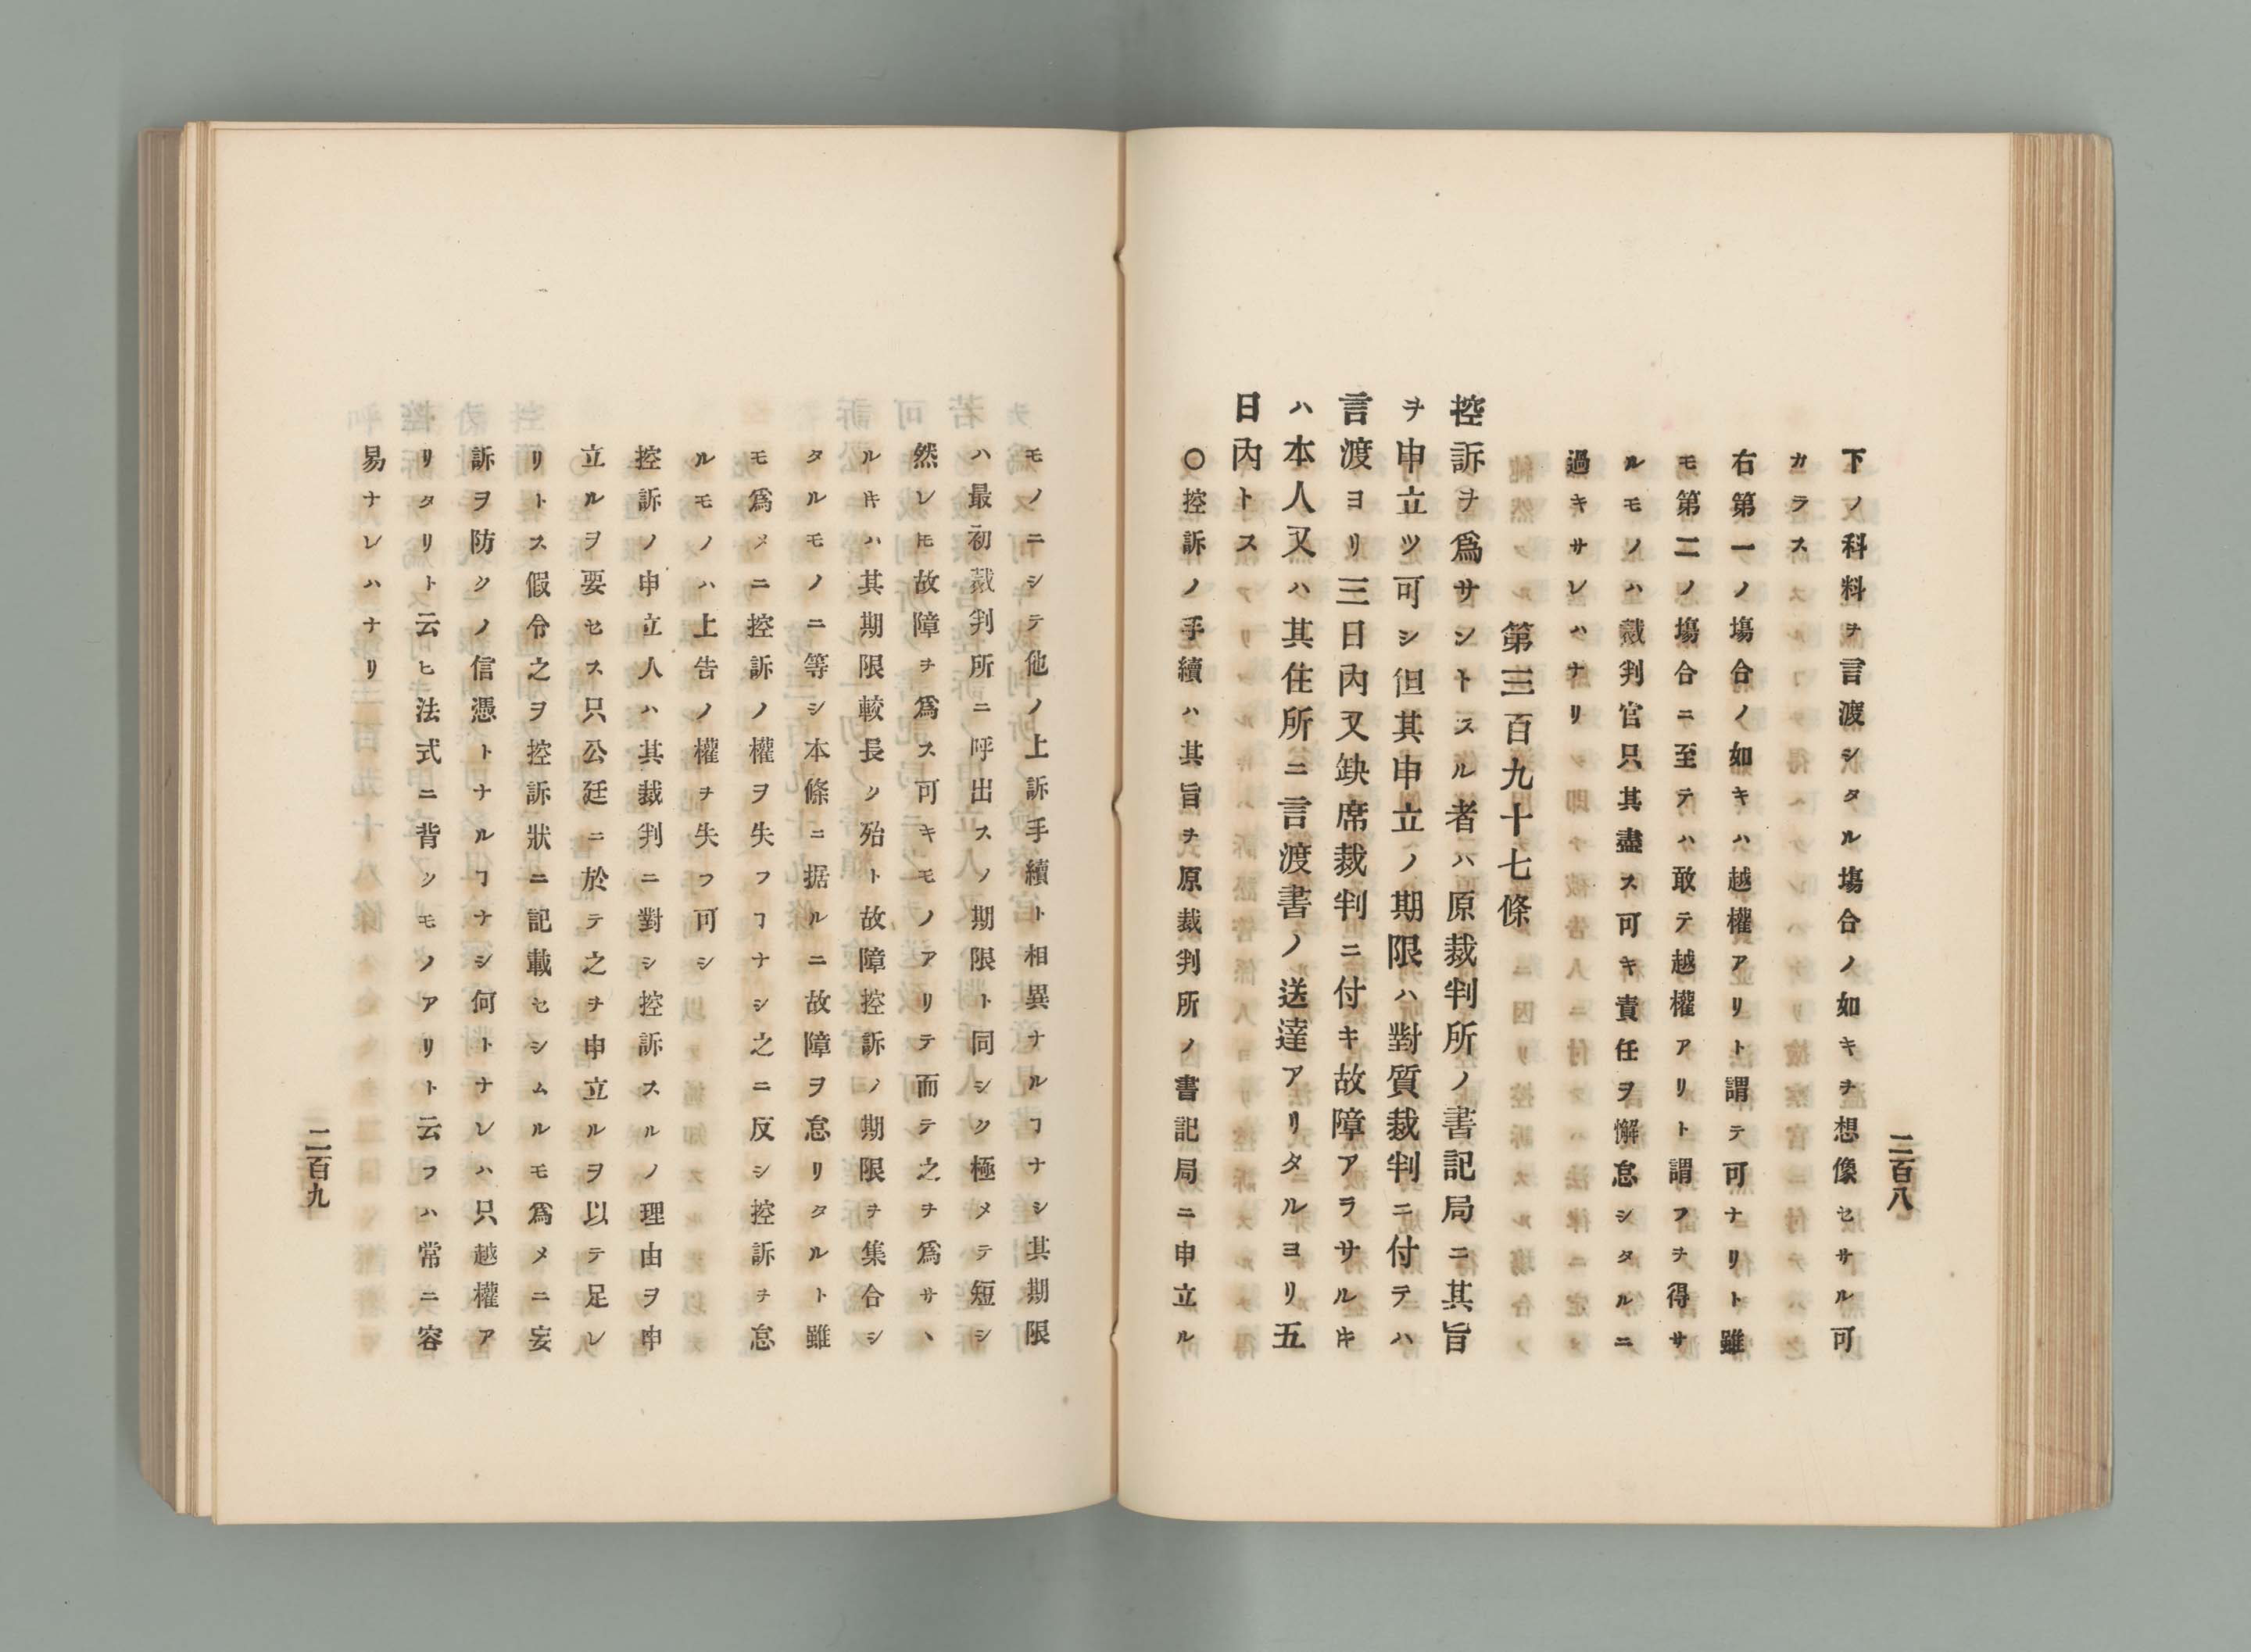 二百八
下ノ科料ヲ言渡シタル塲合ノ如キヲ想像セサル可
カラス
右第一ノ塲合ノ如キハ越權アリト謂テ可ナリト雖
モ第二ノ塲合ニ至テハ敢テ越權アリト謂フヲ得サ
ルモノハ裁判官只其盡ス可キ責任ヲ懈怠シタルニ
過キサレハナリ
第三百九十七條
控訴ヲ爲サントスル者ハ原裁判所ノ書記局ニ其旨
ヲ申立ツ可シ但其申立ノ期限ハ對質裁判ニ付テハ
言渡ヨリ三日內又缺席裁判ニ付キ故障アラサルㇳキ
ハ本人又ハ其住所ニ言渡書ノ送達アリタルヨリ五
日內トス
〇控訴ノ手續ハ其旨ヲ原裁判所ノ書記局ニ申立ル
モノニシテ他ノ上訴手續ト相異ナルヿナシ其期限
ハ最初裁判所ニ呼出スノ期限ト同シク極メテ短シ
然レㇳモ故障ヲ爲ス可キモノアリテ而テ之ヲ爲サヽ
ルㇳキハ其期限較長ク殆ト故障控訴ノ期限ヲ集合シ
タルモノニ等シ本條ニ据ルニ故障ヲ怠リタルト雖
モ爲メニ控訴ノ權ヲ失フヿナシ之ニ反シ控訴ヲ怠
ルモノハ上告ノ權ヲ失フ可シ
控訴ノ申立人ハ其裁判ニ對シ控訴スルノ理由ヲ申
立ルヲ要セス只公廷ニ於テ之ヲ申立ルヲ以テ足レ
リトス假令之ヲ控訴狀ニ記載セシムルモ爲メニ妄
訴ヲ防クノ信憑トナルヿナシ何トナレハ只越權ア
リタリト云ヒ法式ニ背クモノアリト云フハ常ニ容
易ナレハナリ
二百九